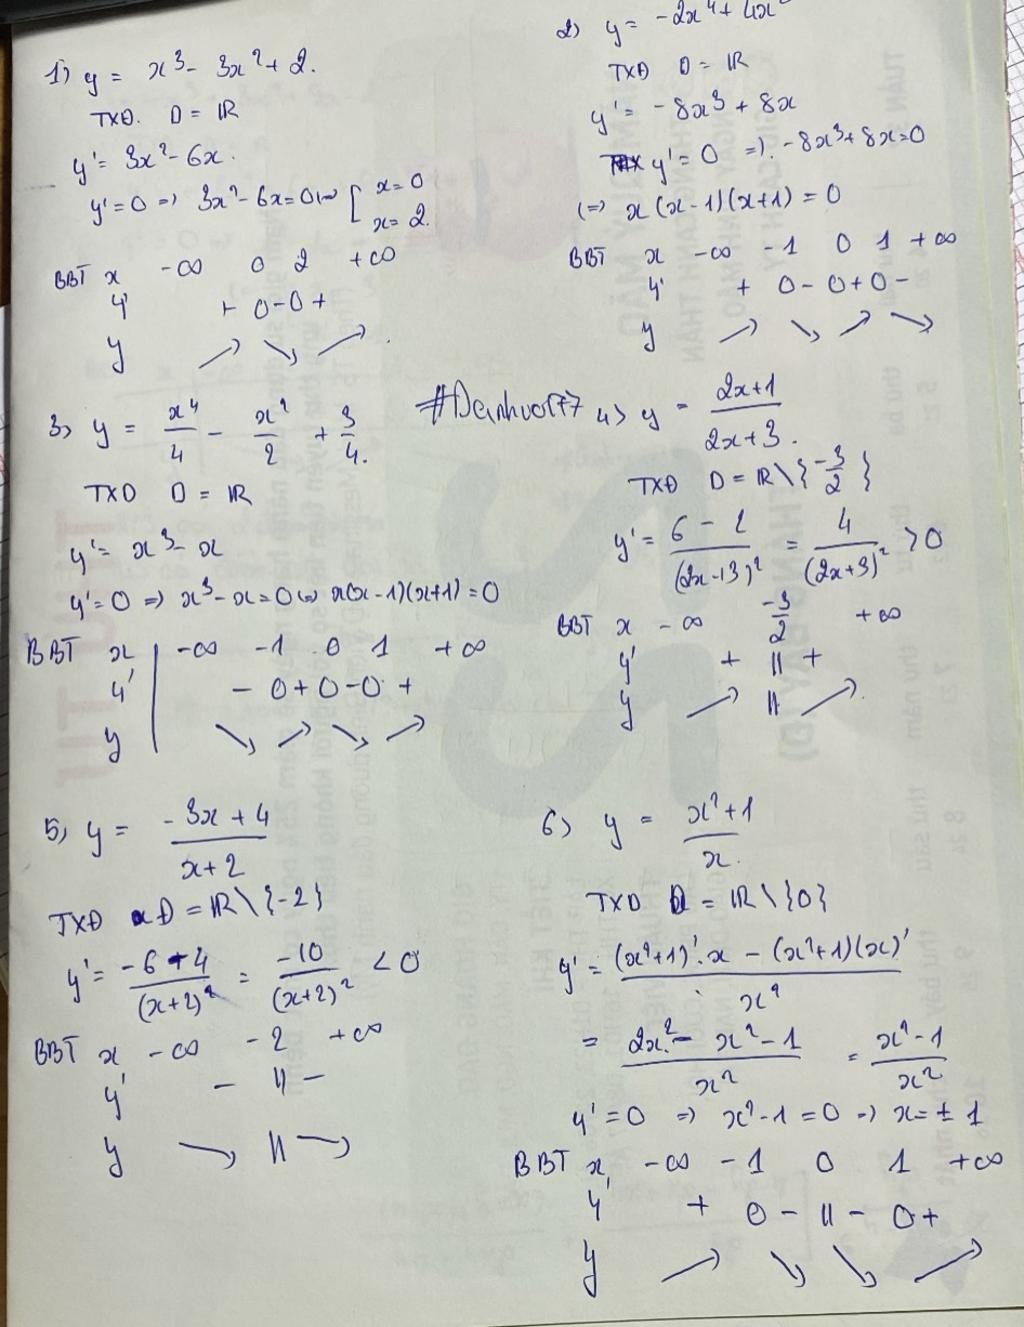 1) y = x³ - 3x² + 2.
TXĐ. D = ℝ
y' = 3x² - 6x.
y' = 0 => 3x² - 6x = 0 <=> [ x = 0
x = 2.
BBT x -∞ 0 2 +∞
y' + 0 - 0 +
y ↗ ↘ ↗.
2) y = -2x⁴ + 4x²
TXĐ D = ℝ
y' = -8x³ + 8x
y' = 0 => -8x³ + 8x = 0
(=> x(x-1)(x+1) = 0
BBT x -∞ -1 0 1 +∞
y' + 0 - 0 + 0 -
y ↗ ↘ ↗ ↘
3) y = x⁴/4 - x²/2 + 3/4.
TXD D = ℝ
y' = x³ - x
y' = 0 => x³ - x = 0 <=> x(x-1)(x+1) = 0
BBT x | -∞ -1 0 1 +∞
y' | - 0 + 0 - 0 +
y | ↘ ↗ ↘ ↗
4) y = (2x+1)/(2x+3).
TXĐ D = ℝ \ {-3/2}
y' = (6 - 2)/(2x+3)² = 4/(2x+3)² > 0
BBT x -∞ -3/2 +∞
y' + || +
y ↗ || ↗.
5) y = (-3x + 4)/(x + 2)
TXĐ D = ℝ \ {-2}
y' = (-6 - 4)/(x+2)² = -10/(x+2)² < 0
BBT x -∞ -2 +∞
y' - || -
y ↘ || ↘
6) y = (x²+1)/x.
TXD D = ℝ \ {0}
y' = ((x²+1)'.x - (x²+1)(x)')/x²
= (2x² - x² - 1)/x² = (x² - 1)/x²
y' = 0 => x² - 1 = 0 => x = ± 1
BBT x -∞ -1 0 1 +∞
y' + 0 - || - 0 +
y ↗ ↘ ↘ ↗